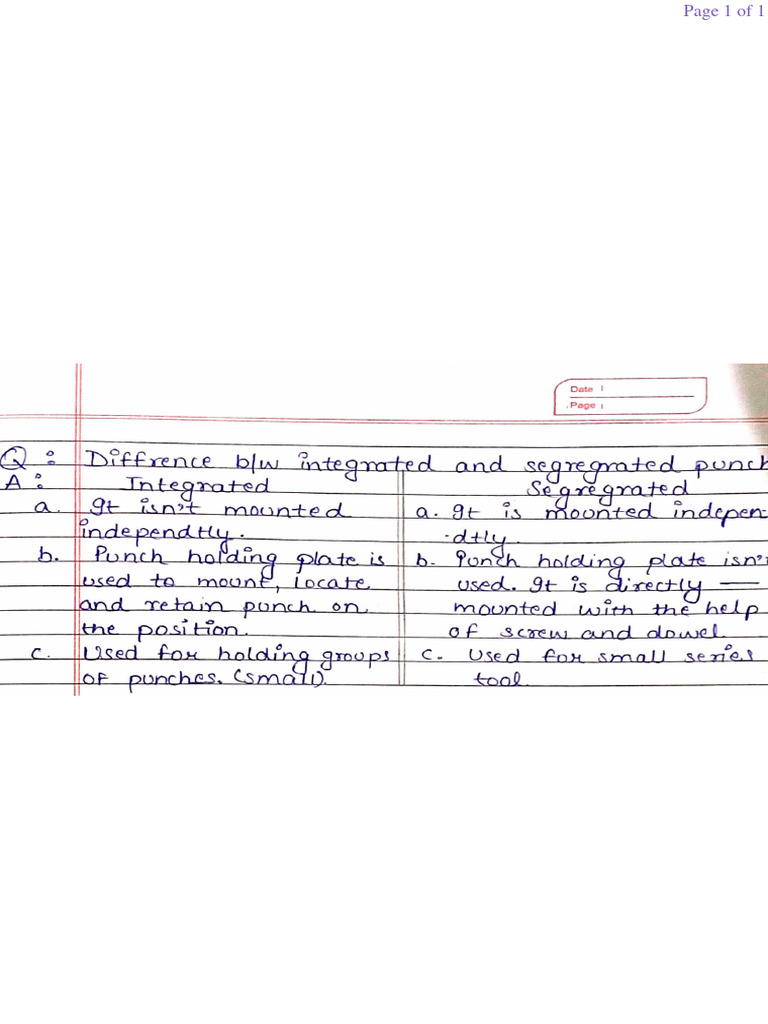 Page 1 of 1
Date
Page
Q : Diffrence b/w integrated and segregrated punch
A : Integrated Segregrated
a. It isn't mounted a. It is mounted indepen-
independtly. -dtly.
b. Punch holding plate is b. Punch holding plate isn't
used to mount, locate used. It is directly —
and retain punch on mounted with the help
the position. of screw and dowel.
c. Used for holding groups c. Used for small series
of punches. (small). tool